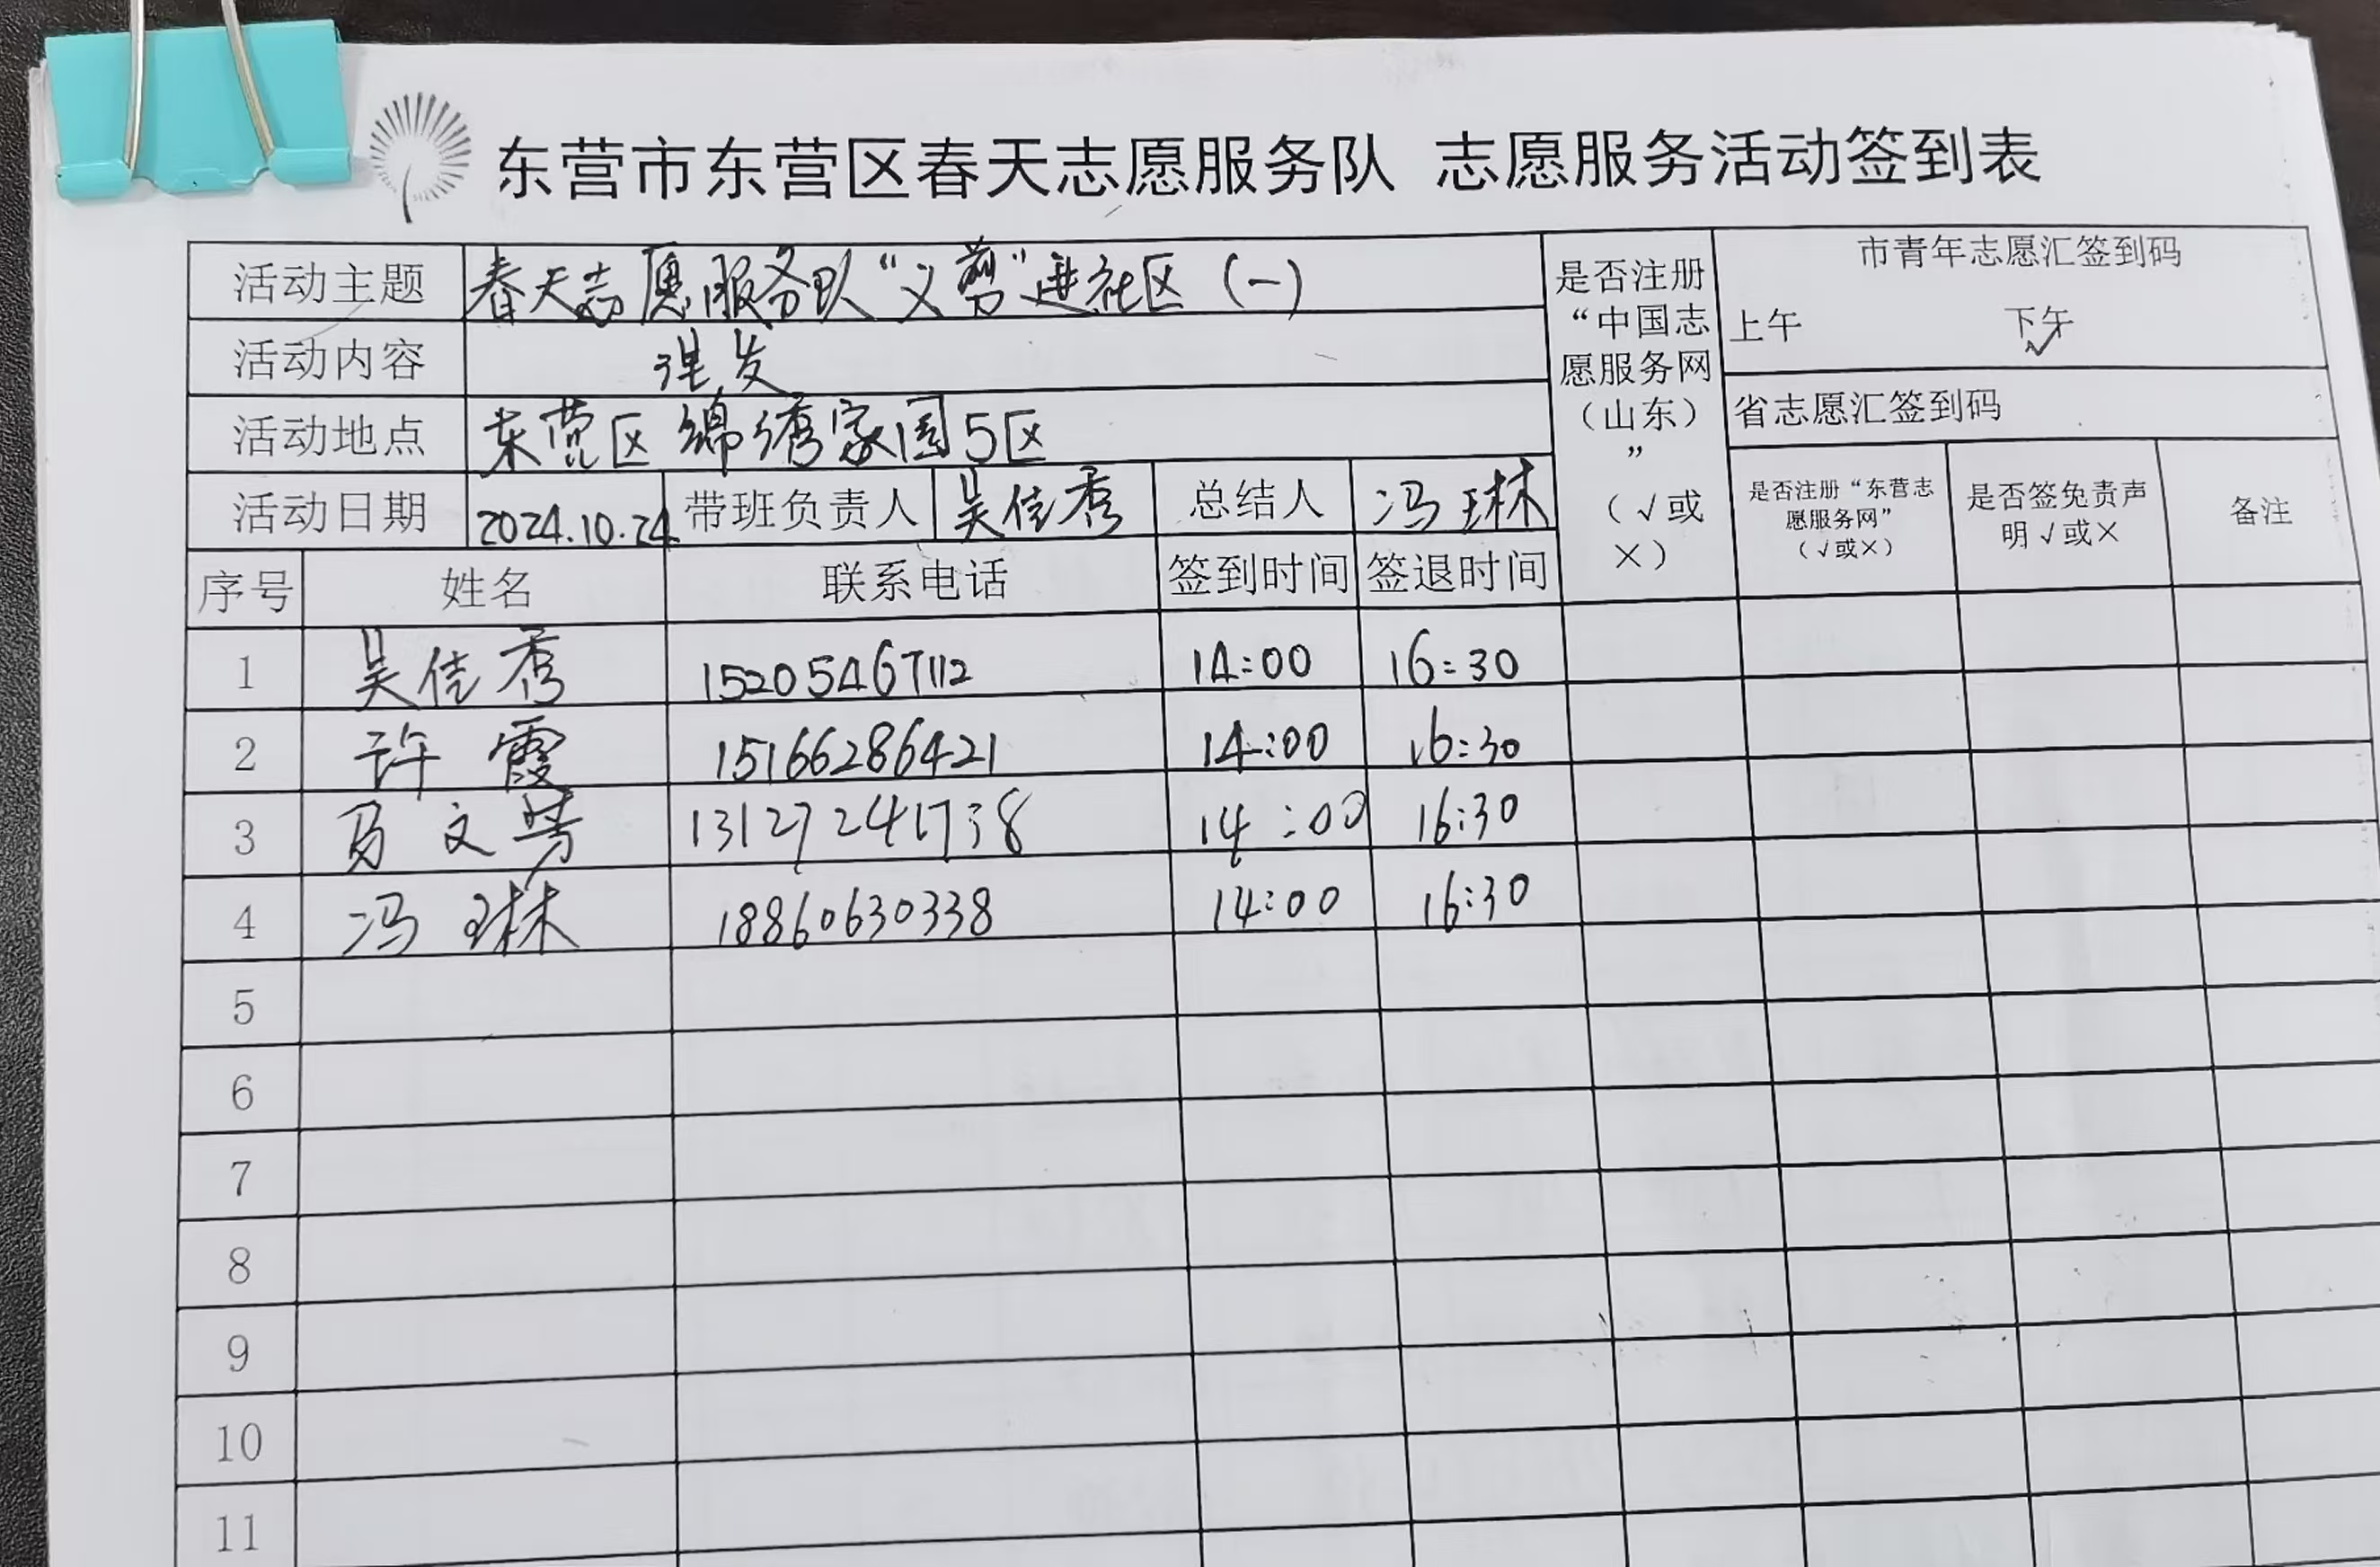 东营市东营区春天志愿服务队 志愿服务活动签到表
活动主题 春天志愿服务队“义剪”进社区（一）
活动内容 理发
活动地点 东营区锦绣家园5区
活动日期 2024.10.24 带班负责人 吴佳秀 总结人 冯琳
是否注册“中国志愿服务网（山东）”（√或×）
市青年志愿汇签到码
上午 下午 √
省志愿汇签到码
是否注册“东营志愿服务网”（√或×） 是否签免责声明√或× 备注
序号 姓名 联系电话 签到时间 签退时间
1 吴佳秀 15205467112 14:00 16:30
2 许霞 15166286421 14:00 16:30
3 文 13127241738 14:00 16:30
4 冯琳 18860630338 14:00 16:30
5
6
7
8
9
10
11